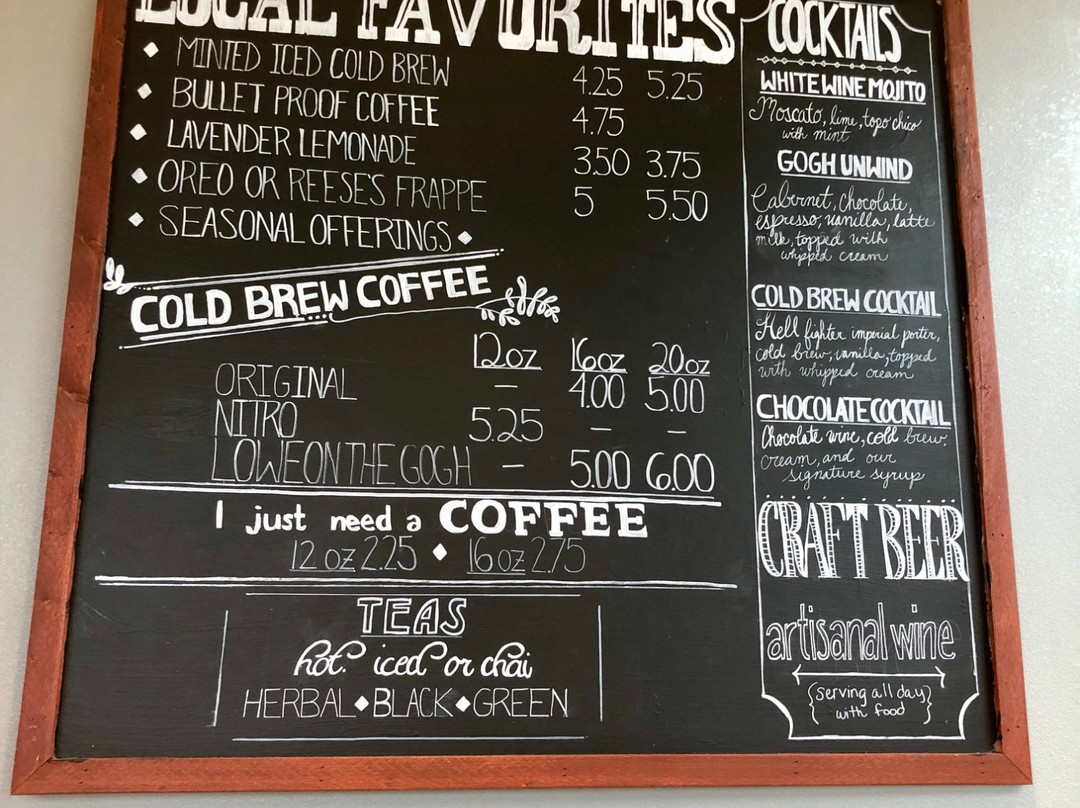 LOCAL FAVORITES
MINTED ICED COLD BREW 4.25 5.25
BULLET PROOF COFFEE 4.75
LAVENDER LEMONADE 3.50 3.75
OREO OR REESE'S FRAPPE 5 5.50
SEASONAL OFFERINGS
COLD BREW COFFEE
12oz 16oz 20oz
ORIGINAL — 4.00 5.00
NITRO 5.25 — —
LOWE ON THE GOGH — 5.00 6.00
I just need a COFFEE
12 oz 2.25 ◆ 16 oz 2.75
TEAS
hot, iced or chai
HERBAL◆BLACK◆GREEN
COCKTAILS
WHITE WINE MOJITO
Moscato, lime, topo chico
with mint
GOGH UNWIND
Cabernet, chocolate,
espresso, vanilla, latte
milk, topped with
whipped cream
COLD BREW COCKTAIL
Hell fighter imperial porter,
cold brew, vanilla, topped
with whipped cream
CHOCOLATE COCKTAIL
Chocolate wine, cold brew,
cream, and our
signature syrup
CRAFT BEER
artisanal wine
{serving all day}
with food